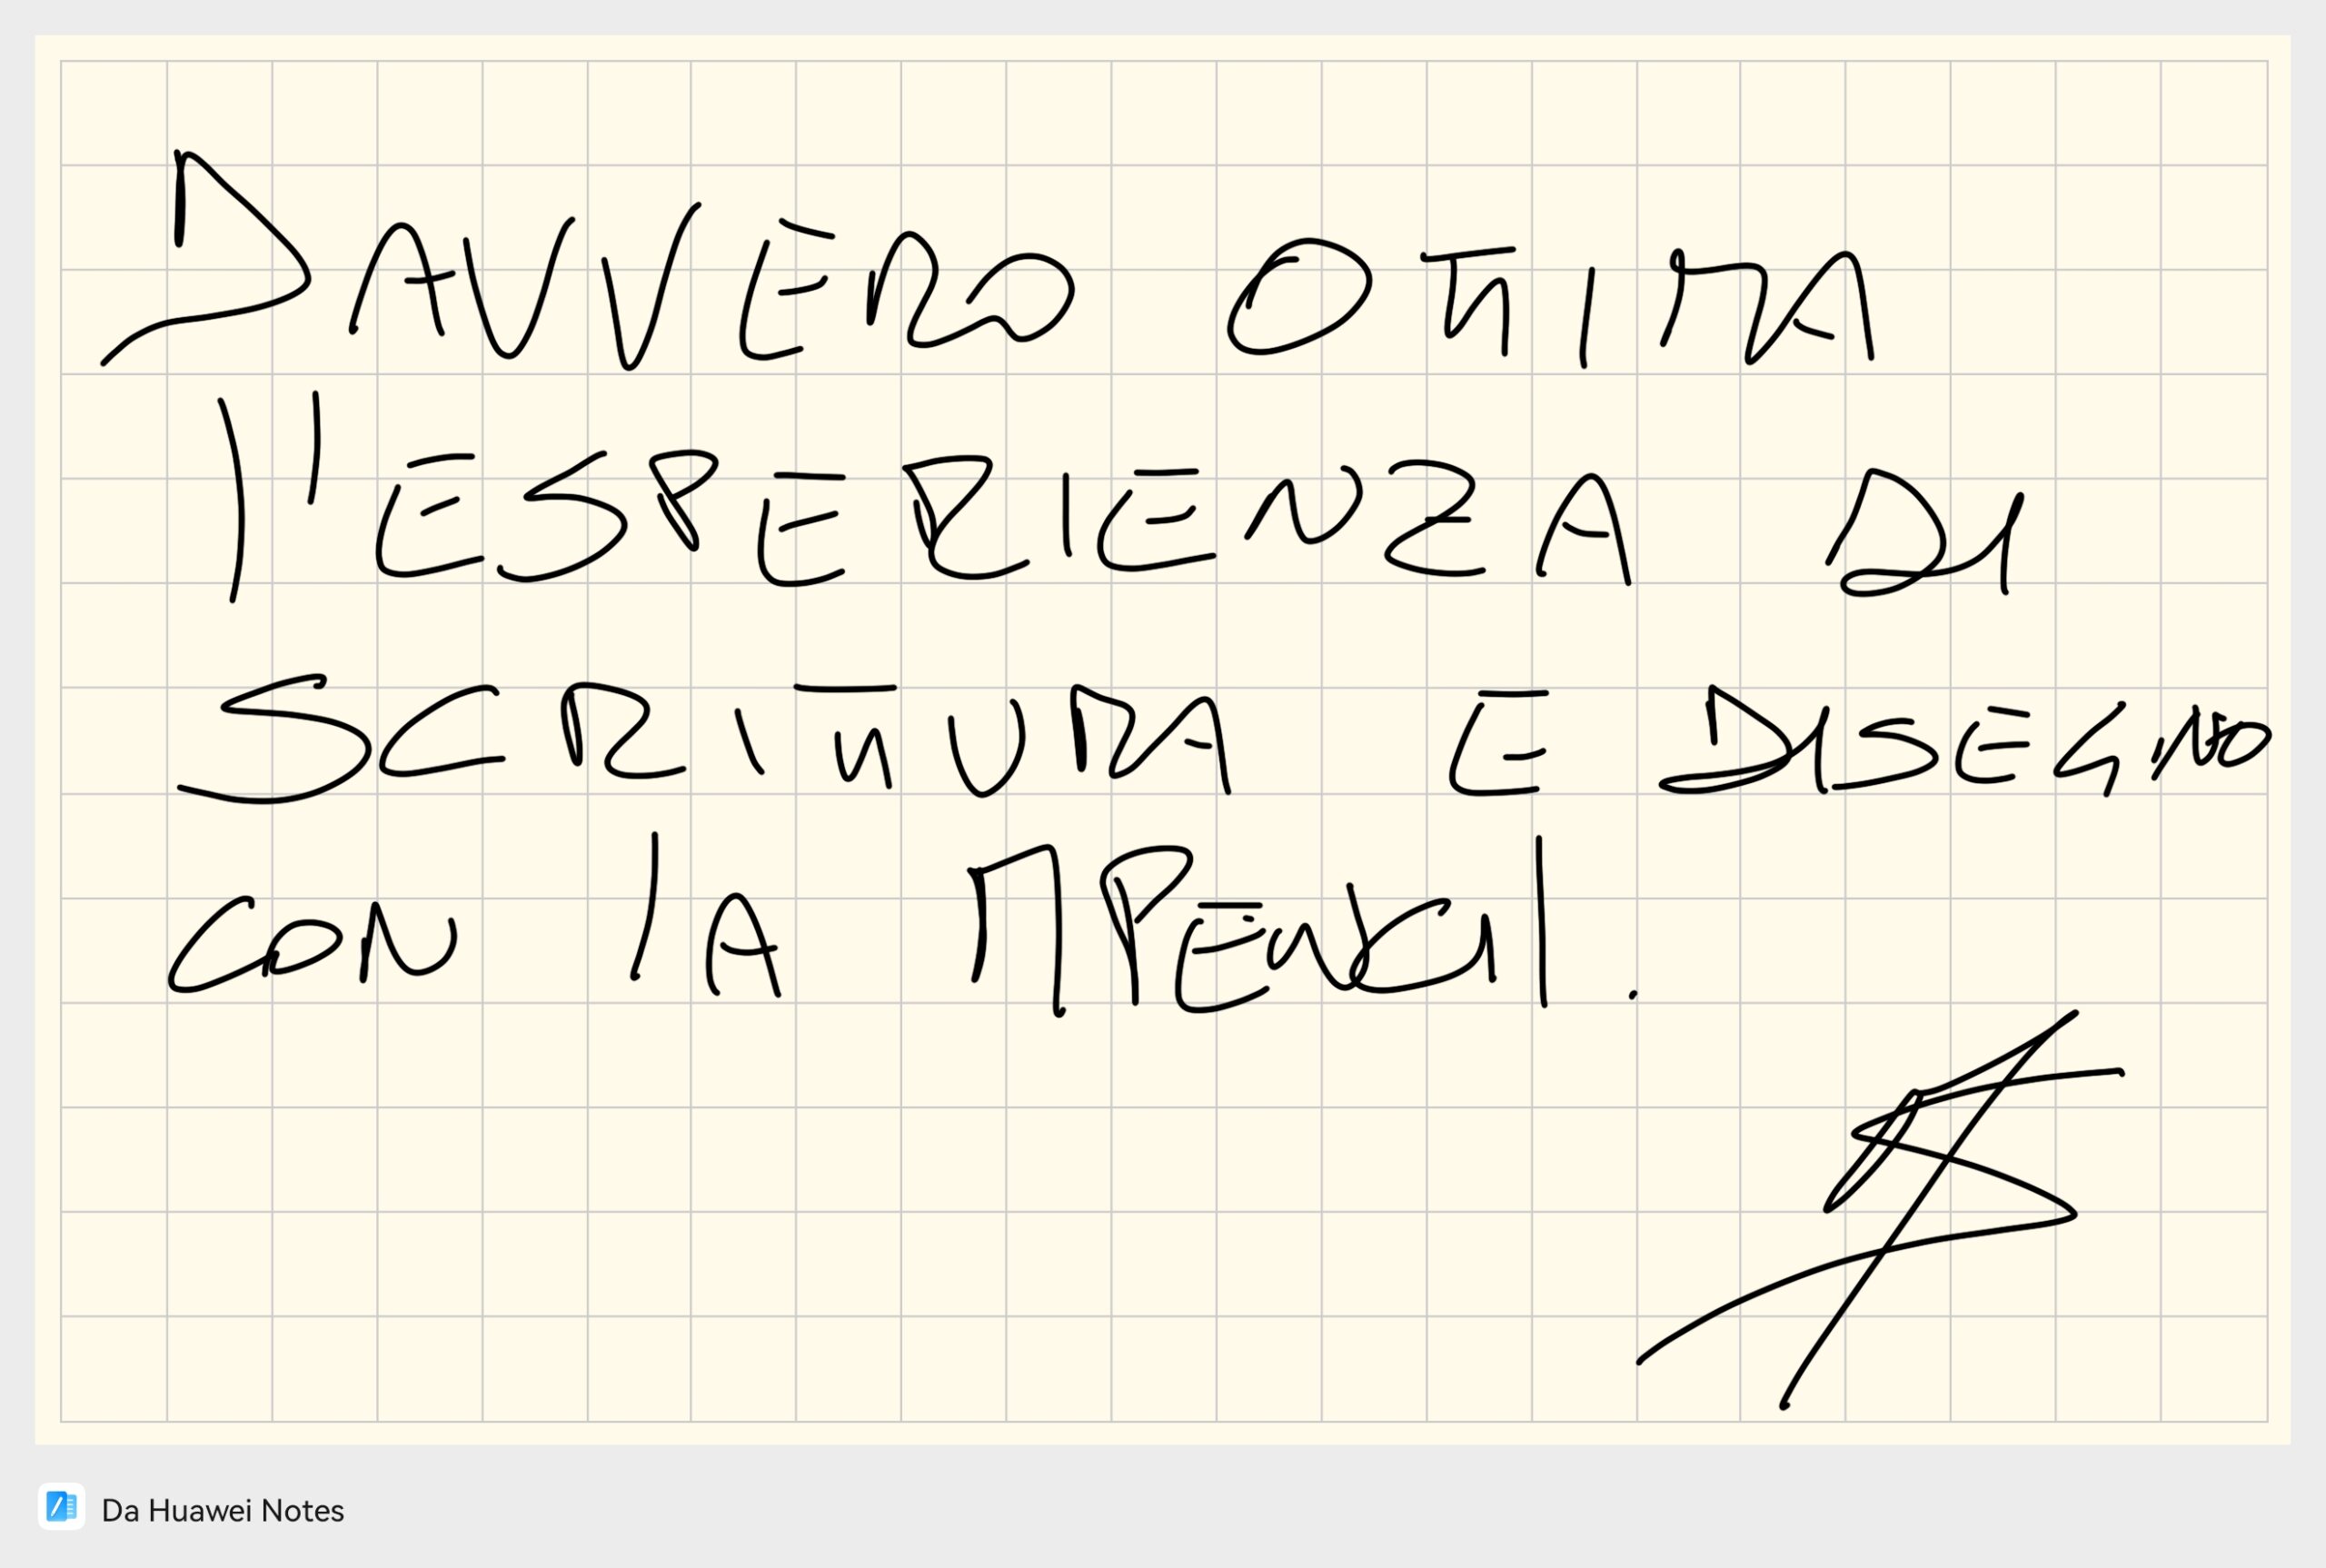 DAVVERO OTTIMA
l'ESPERIENZA DI
SCRITTURA E DISEGNO
CON lA MPENCIl.
Da Huawei Notes